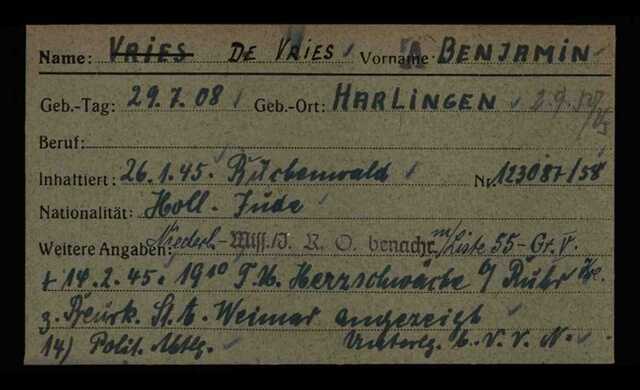 Name: VRIES DE VRIES Vorname: BENJAMIN
Geb.-Tag: 29.7.08 Geb.-Ort: HARLINGEN 2.9.
Beruf:
Inhaftiert: 26.1.45. Buchenwald Nr. 123087/58
Nationalität: Holl. Jude
Weitere Angaben: Niederl. Miss./J. R. O. benachr. m/Liste 55-Gr. V.
+ 14.2.45. 19¹⁰ T.U. Herzschwäche
z. Beurk. St. A. Weimar angezeigt
14) Polit. Abtlg. Unterlg. b. V. V. N.